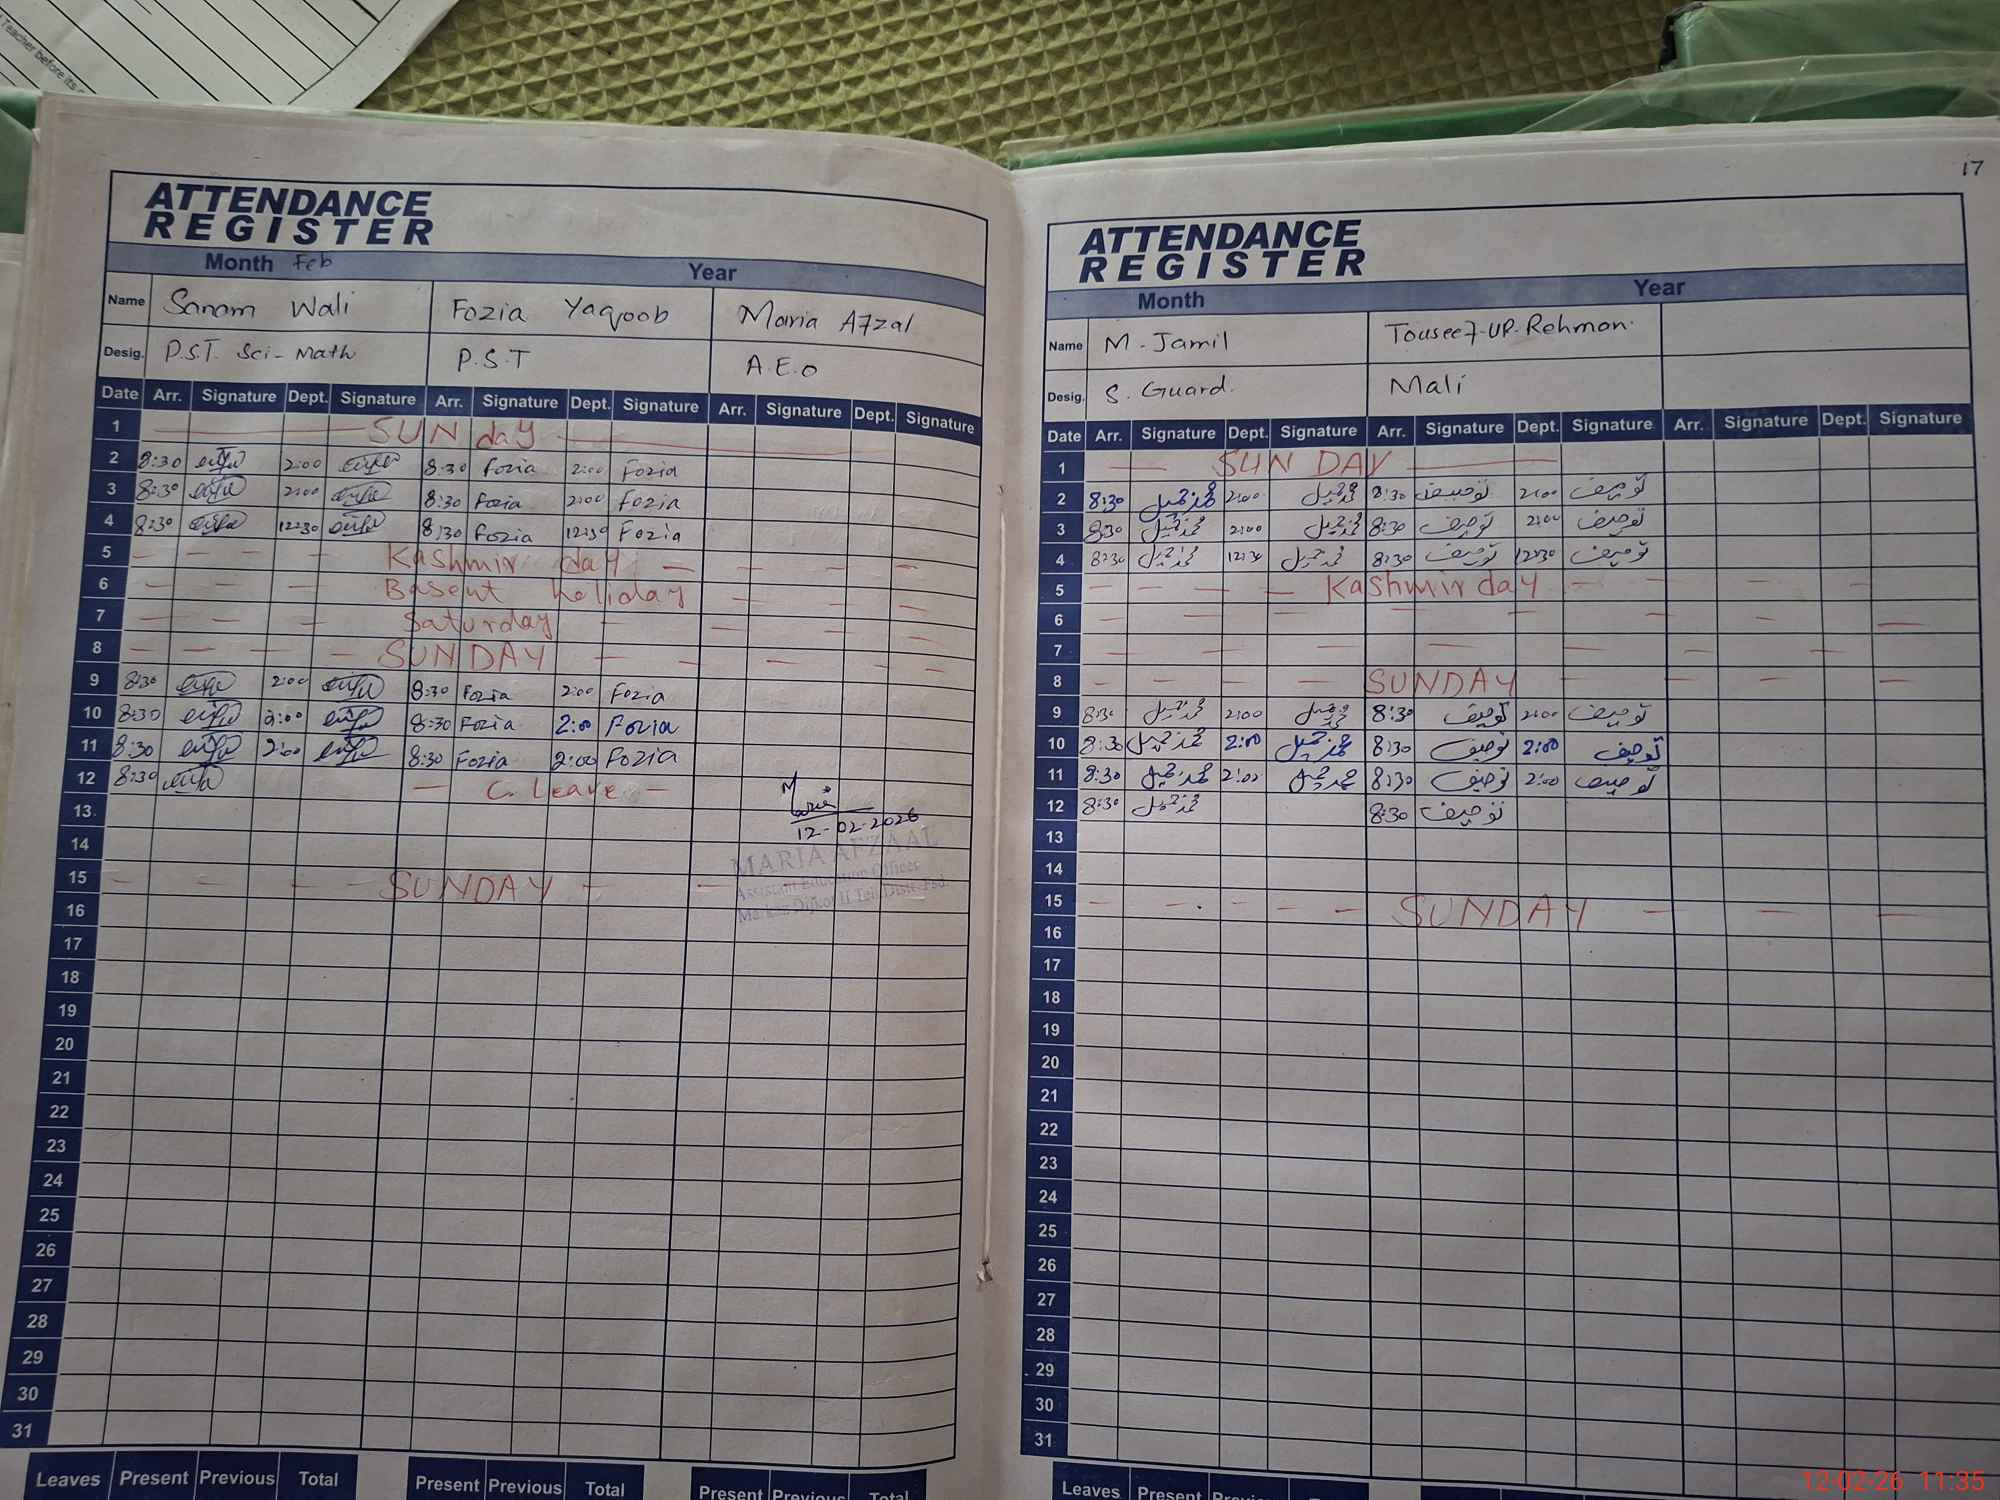 Teacher before its
17
ATTENDANCE
REGISTER
Month Feb Year
Name Sanam Wali Fozia Yaqoob Maria Afzal
Desig. P.S.T. Sci-Math P.S.T A.E.O
Date Arr. Signature Dept. Signature Arr. Signature Dept. Signature Arr. Signature Dept. Signature
1 SUNday
2 8:30 2:00 8:30 Fozia 2:00 Fozia
3 8:30 2:00 8:30 Fozia 2:00 Fozia
4 8:30 12:30 8:30 Fozia 12:30 Fozia
5 Kashmir day
6 Basent holiday
7 Saturday
8 SUNDAY
9 8:30 2:00 8:30 Fozia 2:00 Fozia
10 8:30 2:00 8:30 Fozia 2:00 Fozia
11 8:30 2:00 8:30 Fozia 2:00 Fozia
12 8:30 C. Leave
13 12-02-2026
14 MARIA AFZAAL
Assistant Education Officer
15 SUNDAY
16
17
18
19
20
21
22
23
24
25
26
27
28
29
30
31
Leaves Present Previous Total Present Previous Total Present Previous Total
ATTENDANCE
REGISTER
Month Year
Name M. Jamil Touseef-UP-Rehman.
Desig. S. Guard. Mali
Date Arr. Signature Dept. Signature Arr. Signature Dept. Signature Arr. Signature Dept. Signature
1 SUN DAY
2 8:30 محمد جمیل 2:00 محمد جمیل 8:30 توصیف 2:00 توصیف
3 8:30 محمد جمیل 2:00 محمد جمیل 8:30 توصیف 2:00 توصیف
4 8:30 محمد جمیل 12:30 محمد جمیل 8:30 توصیف 12:30 توصیف
5 Kashmir day
6
7
8 SUNDAY
9 8:30 محمد جمیل 2:00 محمد جمیل 8:30 توصیف 2:00 توصیف
10 8:30 محمد جمیل 2:00 محمد جمیل 8:30 توصیف 2:00 توصیف
11 8:30 محمد جمیل 2:00 محمد جمیل 8:30 توصیف 2:00 توصیف
12 8:30 محمد جمیل 8:30 توصیف
13
14
15 SUNDAY
16
17
18
19
20
21
22
23
24
25
26
27
28
29
30
31
Leaves Present Previous Total
12-02-26 11:35